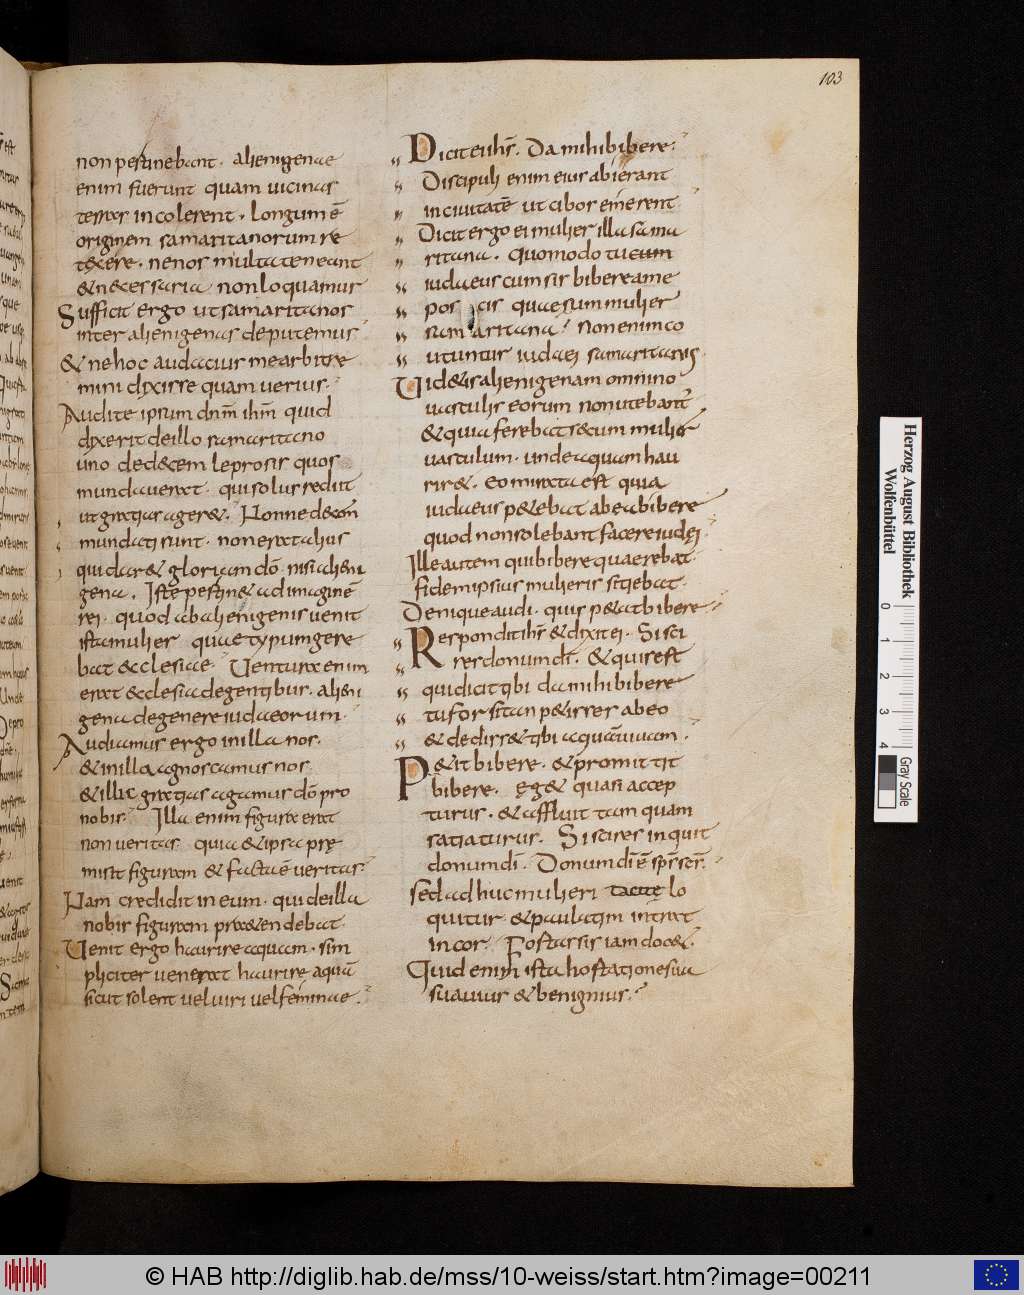 103
non pertinebant. alienigenae
enim fuerunt quam uicinas
terras incolerent. Longum ē
originem samaritanorum re
texere. ne nos multa teneant
& necessaria non loquamur
Sufficit ergo ut samaritanos
inter alienigenas deputemus
& ne hoc audacius me arbitre
mini dixisse quam uerius.
Audite ipsum dnm ihm quid
dixerit de illo samaritano
uno de decem leprosis quos
mundauerat. qui solus rediit
ut gratias ager&. Nonne decem
mundati sunt. non erat alius
qui dar& gloriam dō. nisi alieni
gena. Iste pertin& ad imaginē
rei. quod ab alienigenis uenit
ista mulier quae typum gere
bat ecclesiae. Ventura enim
erat ecclesia de gentibus. alieni
gena de genere iudaeorum.
Audiamus ergo in illa nos.
& in illa agnoscamus nos
& in illa gratias agamus dō pro
nobis. Illa enim figura erat
non ueritas quia & ipsa prę
misit figuram & facta ē ueritas.
Nam credidit in eum. qui de illa
nobis figuram pra&endebat.
Venit ergo haurire aquam. sim
pliciter uenerat haurire aquā
sicut solent uel uiri uel feminae.
Dicit ei ihs. Da mihi bibere.
Discipuli enim eius abierant
in ciuitatē ut cibos emerent
Dicit ergo ei mulier illa sama
ritana. Quomodo tu cum
iudaeus cum sis bibere a me
poscis quae sum mulier
samaritana? Non enim co
utuntur iudaei samaritanis.
Vid&is alienigenam omnino
uasculis eorum non utebant̄
& quia ferebat secum mulier
uasculum. unde aquam hau
rir&. eo mirata est quia
iudaeus p&ebat ab ea bibere
quod non solebant facere iudei.
Ille autem qui bibere quaerebat
fidem ipsius mulieris sitiebat.
Denique audi. quis p&at bibere
Respondit ihs & dixit ei. Si sci
res donum dī. & quis est
qui dicit tibi da mihi bibere
tu forsitan p&isses ab eo
& dediss& tibi aquā uiuam.
P&it bibere. & promittit
bibere. eg& quasi accep
turus. & affluit tam quam
satiaturus. Si scires inquit
donum dī. Donum dī ē sps scs.
sed adhuc mulieri tacite lo
quitur & paulatim intrat
in cor. Fortassis iam doc&.
Quid enim ista hortatione sua
suauius & benignius.
Herzog August Bibliothek
Wolfenbüttel
0 1 2 3 4
Gray Scale
© HAB http://diglib.hab.de/mss/10-weiss/start.htm?image=00211